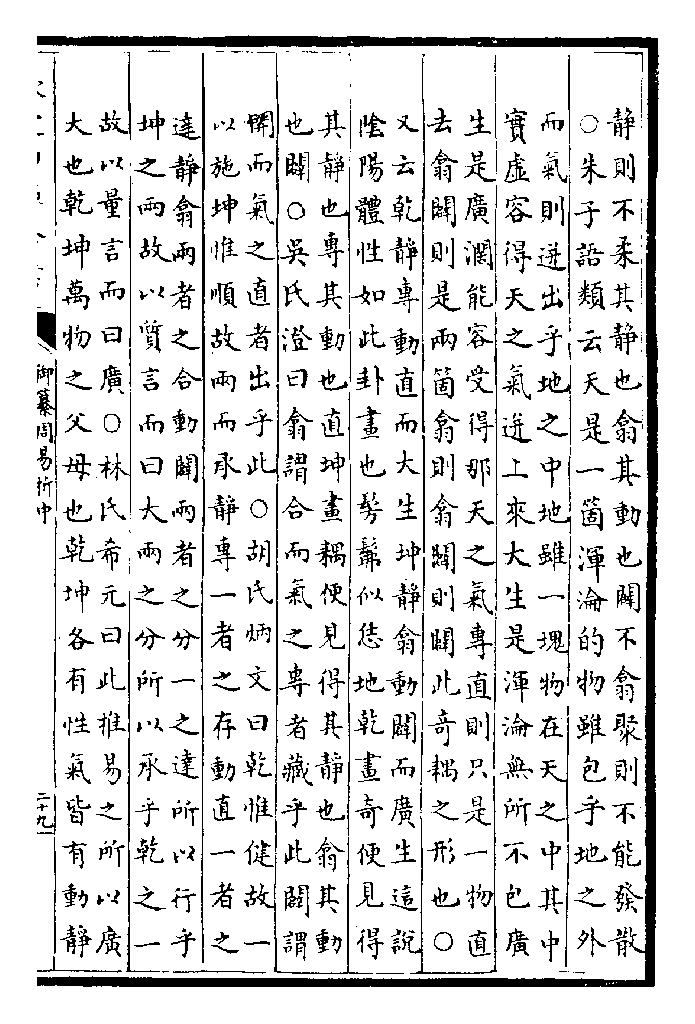 静則不柔其静也翕其動也闢不翕聚則不能發散
○朱子語類云天是一箇渾淪的物雖包乎地之外
而氣則迸出乎地之中地雖一塊物在天之中其中
實虛容得天之氣迸上來大生是渾淪無所不包廣
生是廣濶能容受得那天之氣專直則只是一物直
去翕闢則是兩箇翕則翕闢則闢此奇耦之形也○
又云乾静專動直而大生坤静翕動闢而廣生這說
陰陽體性如此卦畫也髣髴似恁地乾畫奇便見得
其静也專其動也直坤畫耦便見得其静也翕其動
也闢○吳氏澄曰翕謂合而氣之專者藏乎此闢謂
開而氣之直者出乎此○胡氏炳文曰乾惟健故一
以施坤惟順故兩而承静專一者之存動直一者之
達静翕兩者之合動闢兩者之分一之達所以行乎
坤之兩故以質言而曰大兩之分所以承乎乾之一
故以量言而曰廣○林氏希元曰此推易之所以廣
大也乾坤萬物之父母也乾坤各有性氣皆有動静
御纂周易折中
二十九